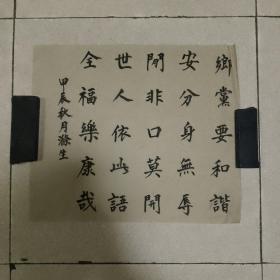 鄉黨要和諧
安分身無辱
閑非口莫開
世人依此語
全福樂康哉
甲辰秋月滌生